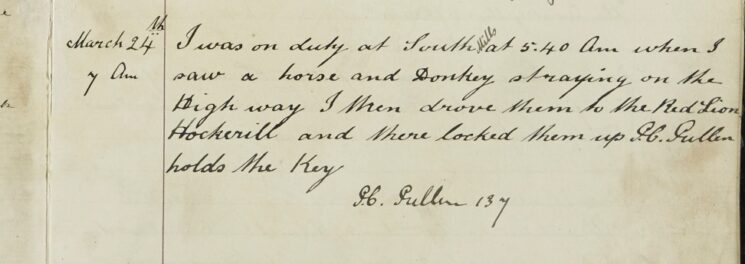 March 24th I was on duty at South Mills at 5.40 Am when I
7 Am saw a horse and Donkey straying on the
High way I then drove them to the Red Lion
Hockerill and there locked them up P.C. Pullen
holds the Key
P.C. Pullen 137